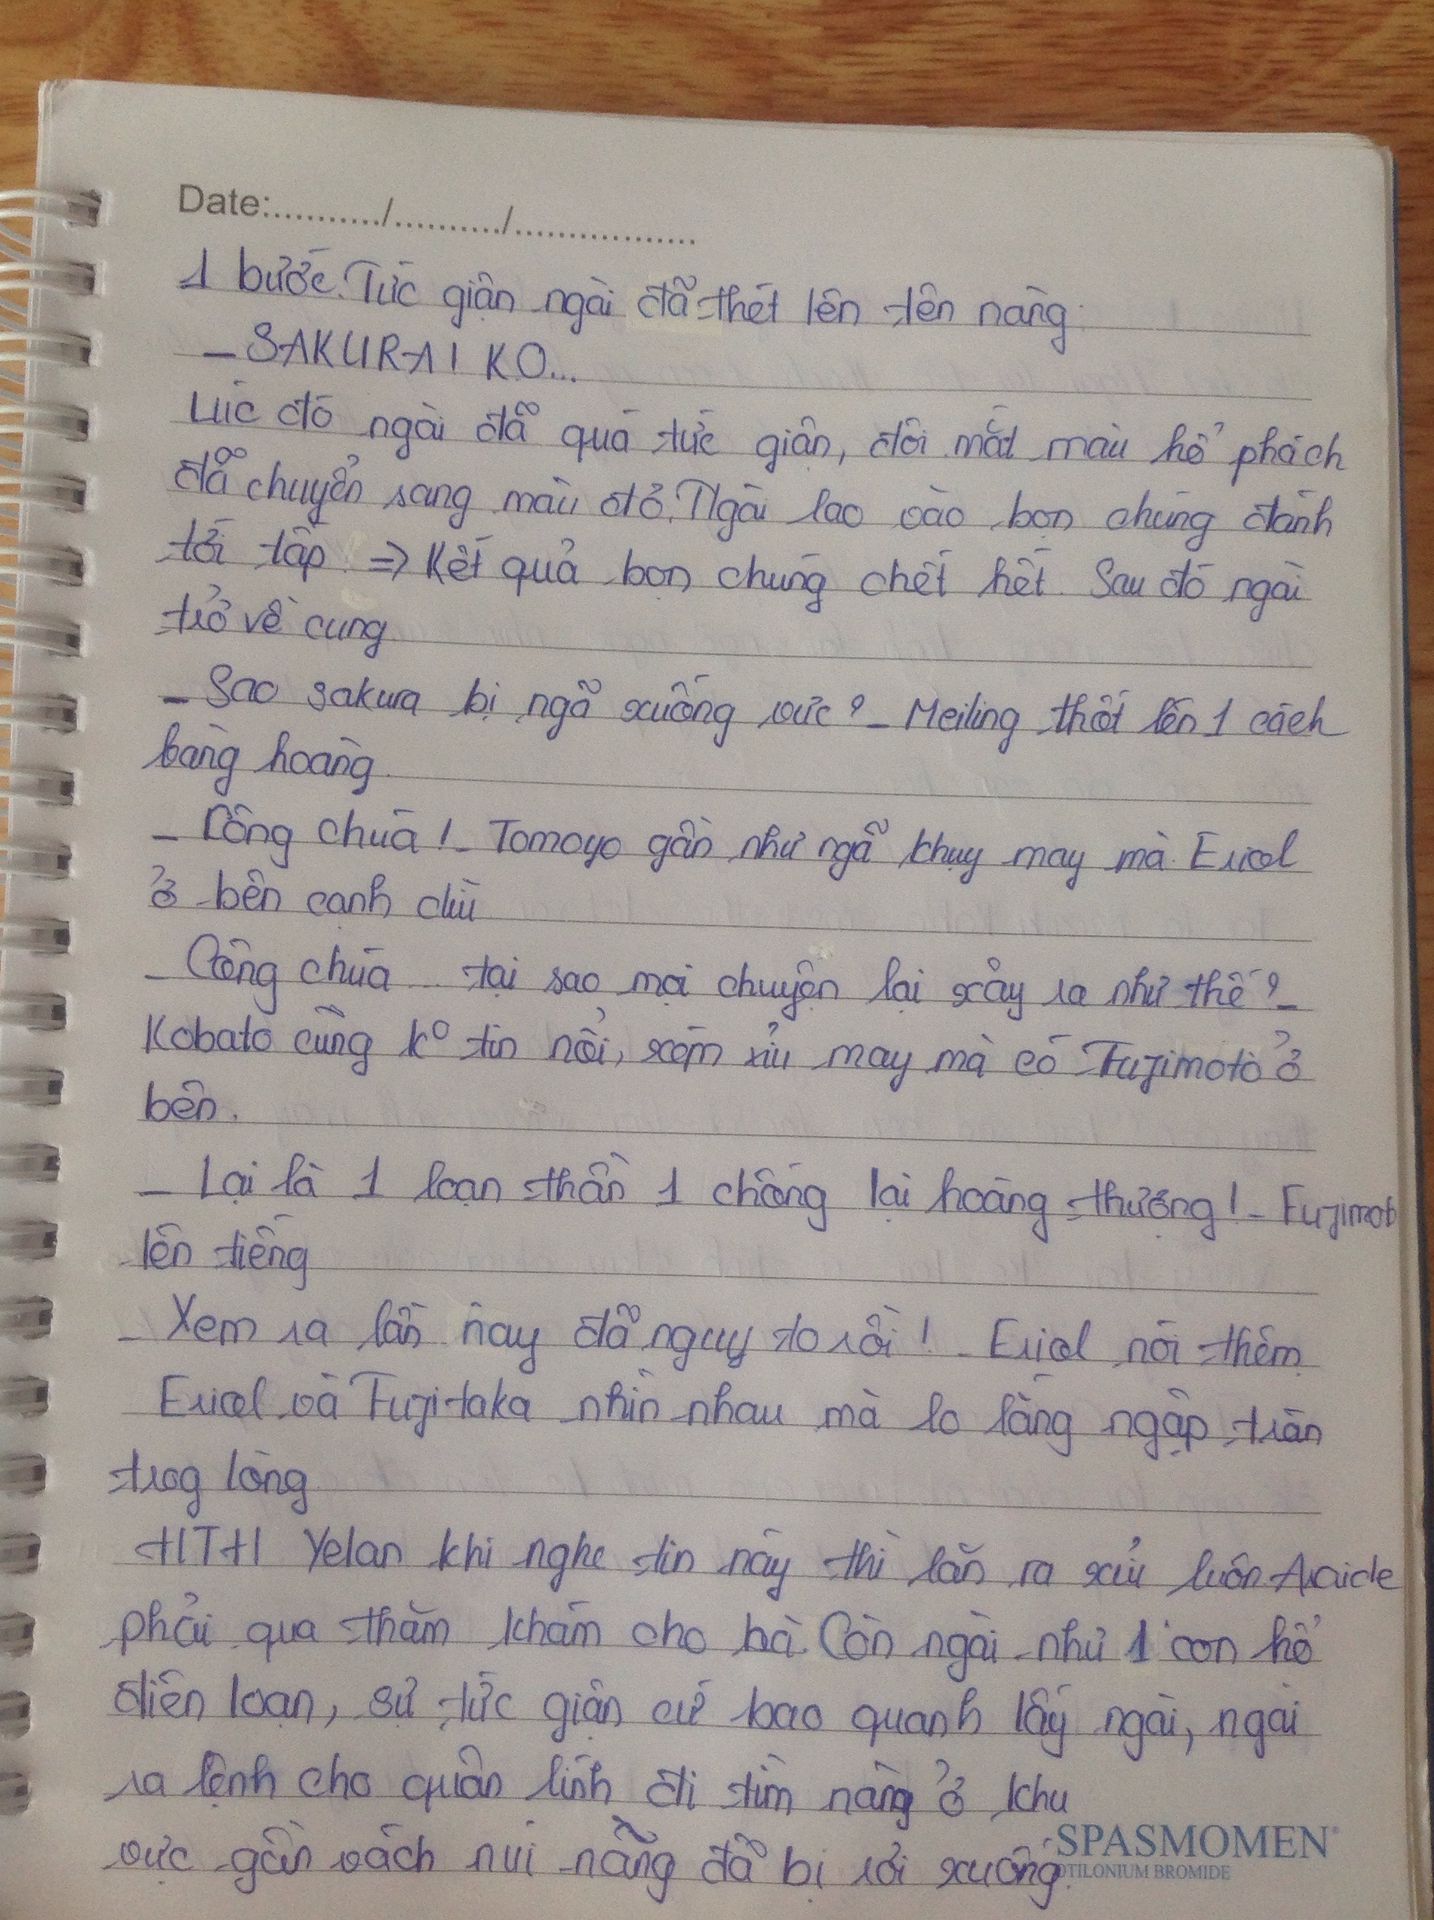 Date:.........../.........../.................
1 bước. Tức giận ngài đã thét lên tên nàng
– SAKURA! KO...
Lúc đó ngài đã quá tức giận, đôi mắt màu hổ phách
đã chuyển sang màu đỏ. Ngài lao vào bọn chúng đánh
tới tấp => Kết quả bọn chúng chết hết. Sau đó ngài
trở về cung
– Sao Sakura bị ngã xuống vực? – Meiling thốt lên 1 cách
bàng hoàng
– Công chúa! – Tomoyo gần như ngã khụy may mà Eriol
ở bên cạnh dìu
– Công chúa ... tại sao mọi chuyện lại xảy ra như thế? –
Kobato cũng ko tin nổi, xém xỉu may mà có Fujimoto ở
bên.
– Lại là 1 loạn thần 1 chống lại hoàng thượng! – Fujimoto
lên tiếng
– Xem ra lần này đã nguy to rồi! – Eriol nói thêm
Eriol và Fujitaka nhìn nhau mà lo lắng ngập tràn
trog lòng
HTH Yelan khi nghe tin này thì lăn ra xỉu luôn Araide
phải qua thăm khám cho bà. Còn ngài như 1 con hổ
điên loạn, sự tức giận cứ bao quanh lấy ngài, ngài
ra lệnh cho quân lính đi tìm nàng ở khu
vực gần vách núi nàng đã bị rơi xuống.
SPASMOMEN®
OTILONIUM BROMIDE